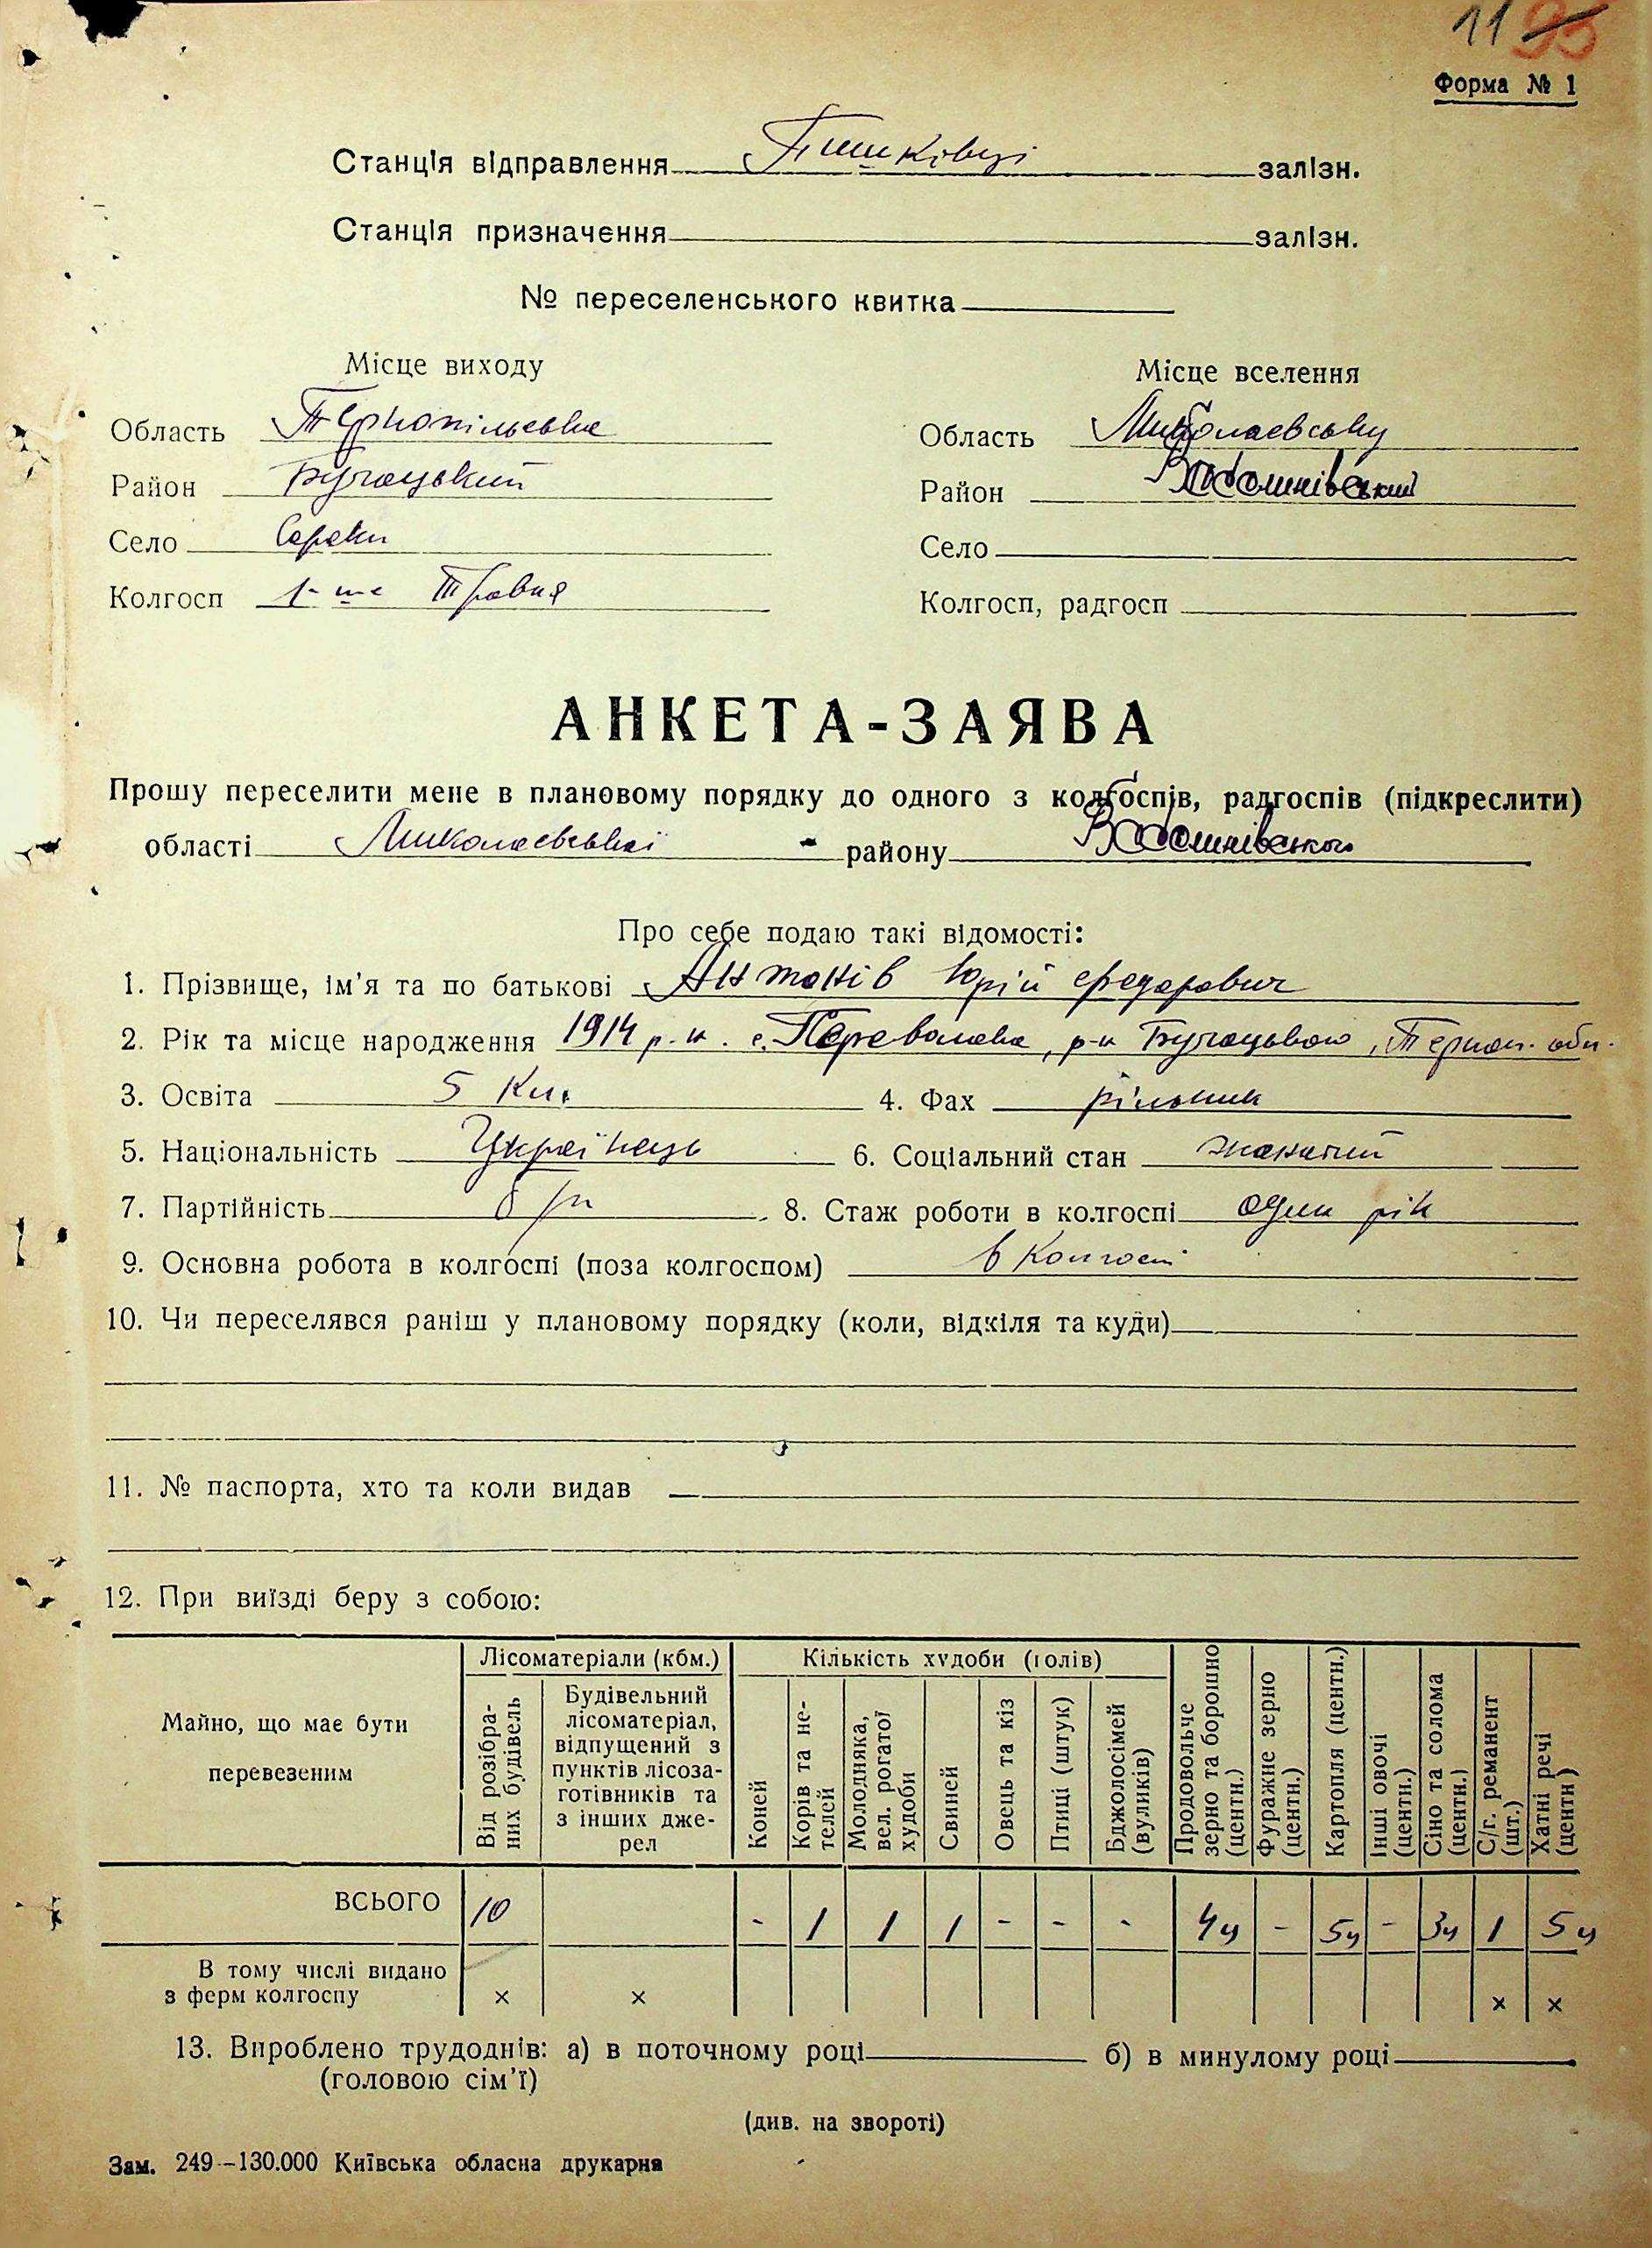 11 95
Форма № 1
Станція відправлення Пишківці залізн.
Станція призначення залізн.
№ переселенського квитка
Місце виходу Місце вселення
Область Тернопільська Область Миколаевську
Район Бучацький Район
Село Сороки Село
Колгосп 1-ше Травня Колгосп, радгосп
АНКЕТА-ЗАЯВА
Прошу переселити мене в плановому порядку до одного з колгоспів, радгоспів (підкреслити)
області Миколаевської району
Про себе подаю такі відомості:
1. Прізвище, ім'я та по батькові Антонів Юрій Федорович
2. Рік та місце народження 1914 р. н. с. Переволока, р-н Бучацького, Терноп. обл.
3. Освіта 5 кл. 4. Фах рільник
5. Національність Українець 6. Соціальний стан жонатий
7. Партійність б/п 8. Стаж роботи в колгоспі один рік
9. Основна робота в колгоспі (поза колгоспом) в колгоспі
10. Чи переселявся раніш у плановому порядку (коли, відкіля та куди)
11. № паспорта, хто та коли видав
12. При виїзді беру з собою:
Майно, що має бути перевезеним
Лісоматеріали (кбм.)
Від розібраних будівель
Будівельний лісоматеріал, відпущений з пунктів лісозаготівників та з інших джерел
Кількість худоби (голів)
Коней
Корів та нетелей
Молодняка, вел. рогатої худоби
Свиней
Овець та кіз
Птиці (штук)
Бджолосімей (вуликів)
Продовольче зерно та борошно (центн.)
Фуражне зерно (центн.)
Картопля (центн.)
Інші овочі (центн.)
Сіно та солома (центн.)
С/г. реманент (шт.)
Хатні речі (центн)
ВСЬОГО 10 - 1 1 1 - - - 4ц - 5ц - 3ц 1 5ц
В тому числі видано з ферм колгоспу × × × ×
13. Вироблено трудоднів: а) в поточному році б) в минулому році
(головою сім'ї)
(див. на звороті)
Зам. 249-130.000 Київська обласна друкарня